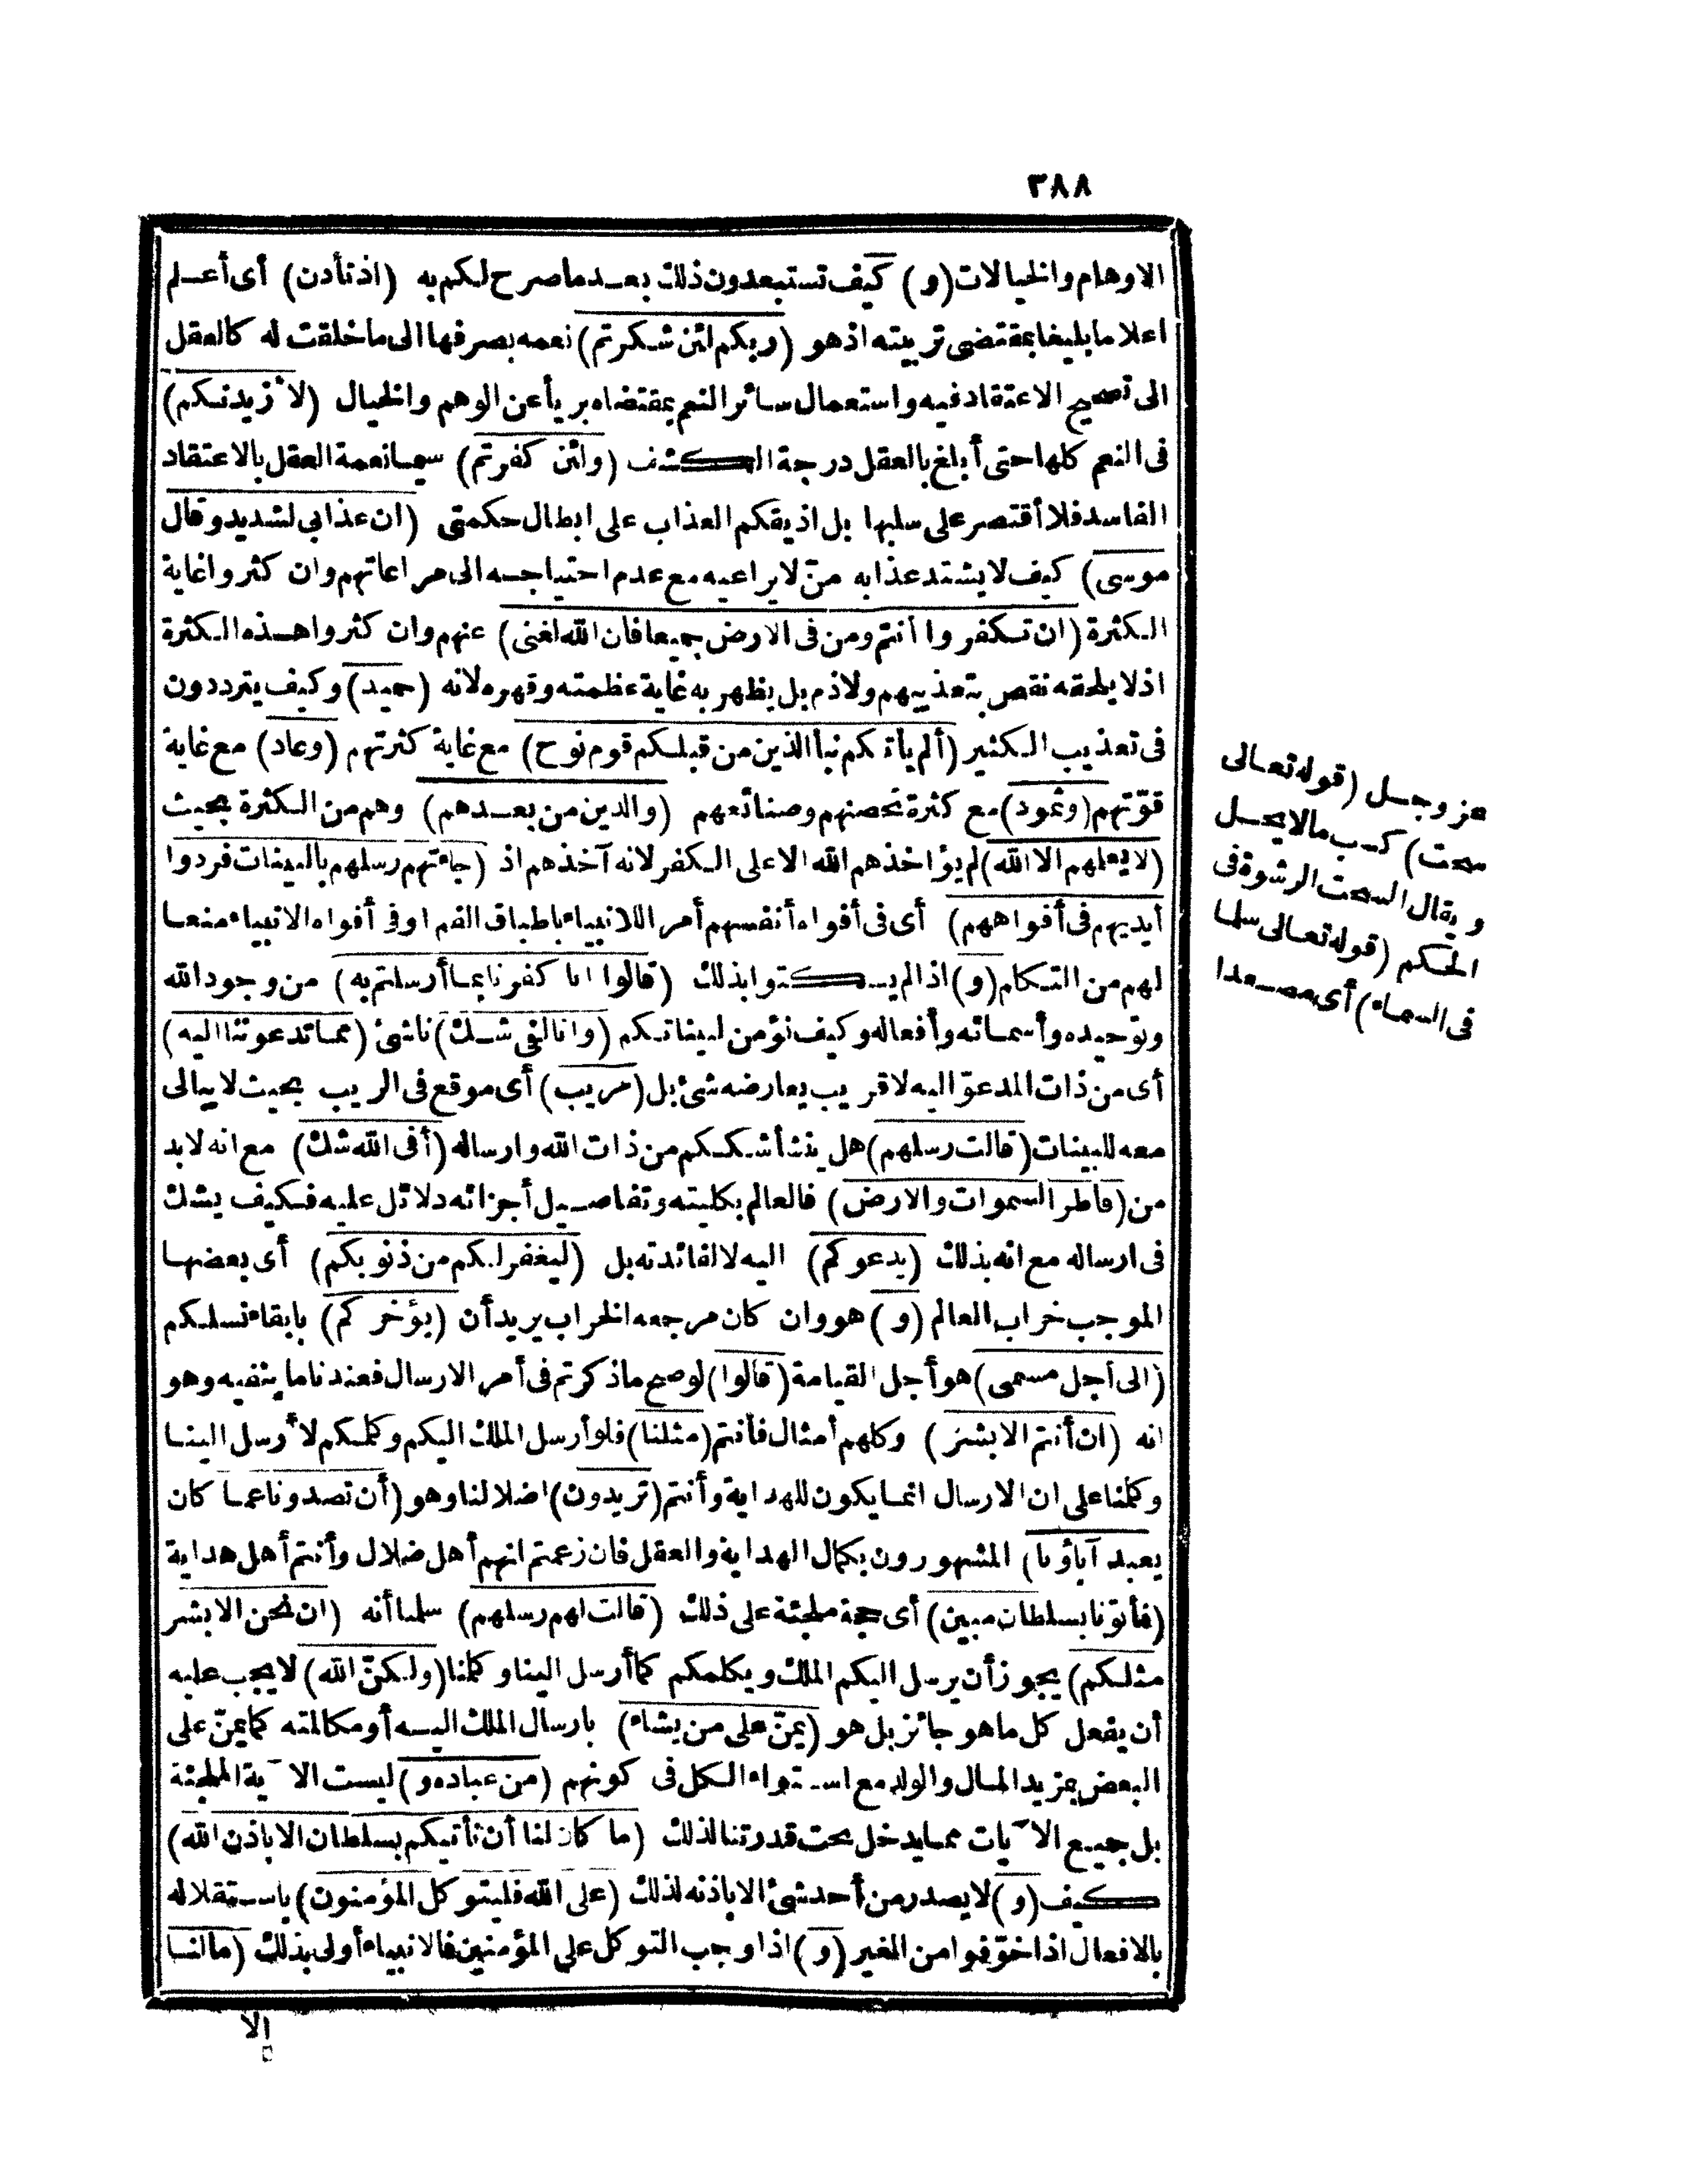 ٣٨٨
الاوهام والخيالات (و) كيف تستبعدون ذلك بعد ما صرح لكم به (اذ تأذن) أى أعلم
اعلاما بليغا بمقتضى تربيته اذ هو (ربكم لئن شكرتم) نعمه بصرفها الى ما خلقت له كالعقل
الى تصحيح الاعتقاد فيه واستعمال سائر النعم بمقتضاه بريأ عن الوهم والخيال (لا ٔزيدنكم)
فى النعم كلها حتى أبلغ بالعقل درجة الكشف (ولئن كفرتم) سيما نعمة العقل بالاعتقاد
الفاسد فلا أقتصر على سلبها بل اذيقكم العذاب على ابطال حكمتى (ان عذابي لشديد وقال
موسى) كيف لا يشتد عذابه من لا يراعيه مع عدم احتياجه الى مراعاتهم وان كثروا غاية
الكثرة (ان تكفروا أنتم ومن فى الارض جميعا فان الله لغنى) عنهم وان كثروا هذه الكثرة
اذ لا يلحقه نقص بتعذيبهم ولا ذم بل يظهر به غاية عظمته وقهره لانه (حميد) وكيف يترددون
فى تعذيب الكثير (ألم يأتكم نبأ الذين من قبلكم قوم نوح) مع غاية كثرتهم (وعاد) مع غاية
قوّتهم (وثمود) مع كثرة تحصنهم وصنائعهم (والذين من بعدهم) وهم من الكثرة بحيث
(لا يعلمهم الا الله) لم يؤاخذهم الله الا على الكفر لانه آخذهم اذ (جاءتهم رسلهم بالبينات فردوا
أيديهم فى أفواههم) أى فى أفواه أنفسهم أمر اللانبياء باطباق الفم او فى أفواه الانبياء منعا
لهم من التكلم (و) اذ لم يسكتوا بذلك (قالوا انا كفرنا بما أرسلتم به) من وجود الله
وتوحيده وأسمائه وأفعاله وكيف نؤمن لبيناتكم (وانا لفى شك) ناشئ (مما تدعوننا اليه)
أى من ذات المدعوّ اليه لا قريب يعارضه شئ بل (مريب) أى موقع فى الريب بحيث لا يبالى
معه للبينات (قالت رسلهم) هل ينشأ شككم من ذات الله وارساله (أفى الله شك) مع انه لابد
من (فاطر السموات والارض) فالعالم بكليته وتفاصيل أجزائه دلائل عليه فكيف يشك
فى ارساله مع انه بذلك (يدعوكم) اليه لا لفائدته بل (ليغفر لكم من ذنوبكم) أى بعضها
الموجب خراب العالم (و) هو وان كان مرجعه الخراب يريد أن (يؤخركم) بابقاء نسلكم
(الى أجل مسمى) هو أجل القيامة (قالوا) لو صح ما ذكرتم فى أمر الارسال فعندنا ما ينفيه وهو
انه (ان أنتم الا بشر) وكلهم أمثال فأنتم (مثلنا) فلو أرسل الملك اليكم وكلمكم لا ٔرسل الينا
وكلمنا على ان الارسال انما يكون للهداية وأنتم (تريدون) اضلالنا وهو (أن تصدونا عما كان
يعبد آباؤنا) المشهورون بكمال الهداية والعقل فان زعمتم انهم أهل ضلال وأنتم أهل هداية
(فأتونا بسلطان مبين) أى حجة ملجئة على ذلك (قالت لهم رسلهم) سلمنا أنه (ان نحن الا بشر
مثلكم) يجوز أن يرسل اليكم الملك ويكلمكم كما أرسل الينا وكلمنا (ولكنّ الله) لا يجب عليه
أن يفعل كل ما هو جائز بل هو (يمنّ على من يشاء) بارسال الملك اليه أو مكالمته كما يمنّ على
البعض بمزيد المال والولد مع استواء الكل فى كونهم (من عباده و) ليست الآية الملجئة
بل جميع الآيات مما يدخل تحت قدرتنا لذلك (ما كان لنا أن نأتيكم بسلطان الا باذن الله)
كيف (و) لا يصدر من أحد شئ الا باذنه لذلك (على الله فليتوكل المؤمنون) باستقلاله
بالافعال اذا خوّفوا من الغير (و) اذا وجب التوكل على المؤمنين فالانبياء أولى بذلك (ما لنا
الا
عز وجل (قوله تعالى
سحت) كسب ما لا يحل
ويقال السحت الرشوة فى
الحكم (قوله تعالى سلما
فى السماء) أى مصعدا